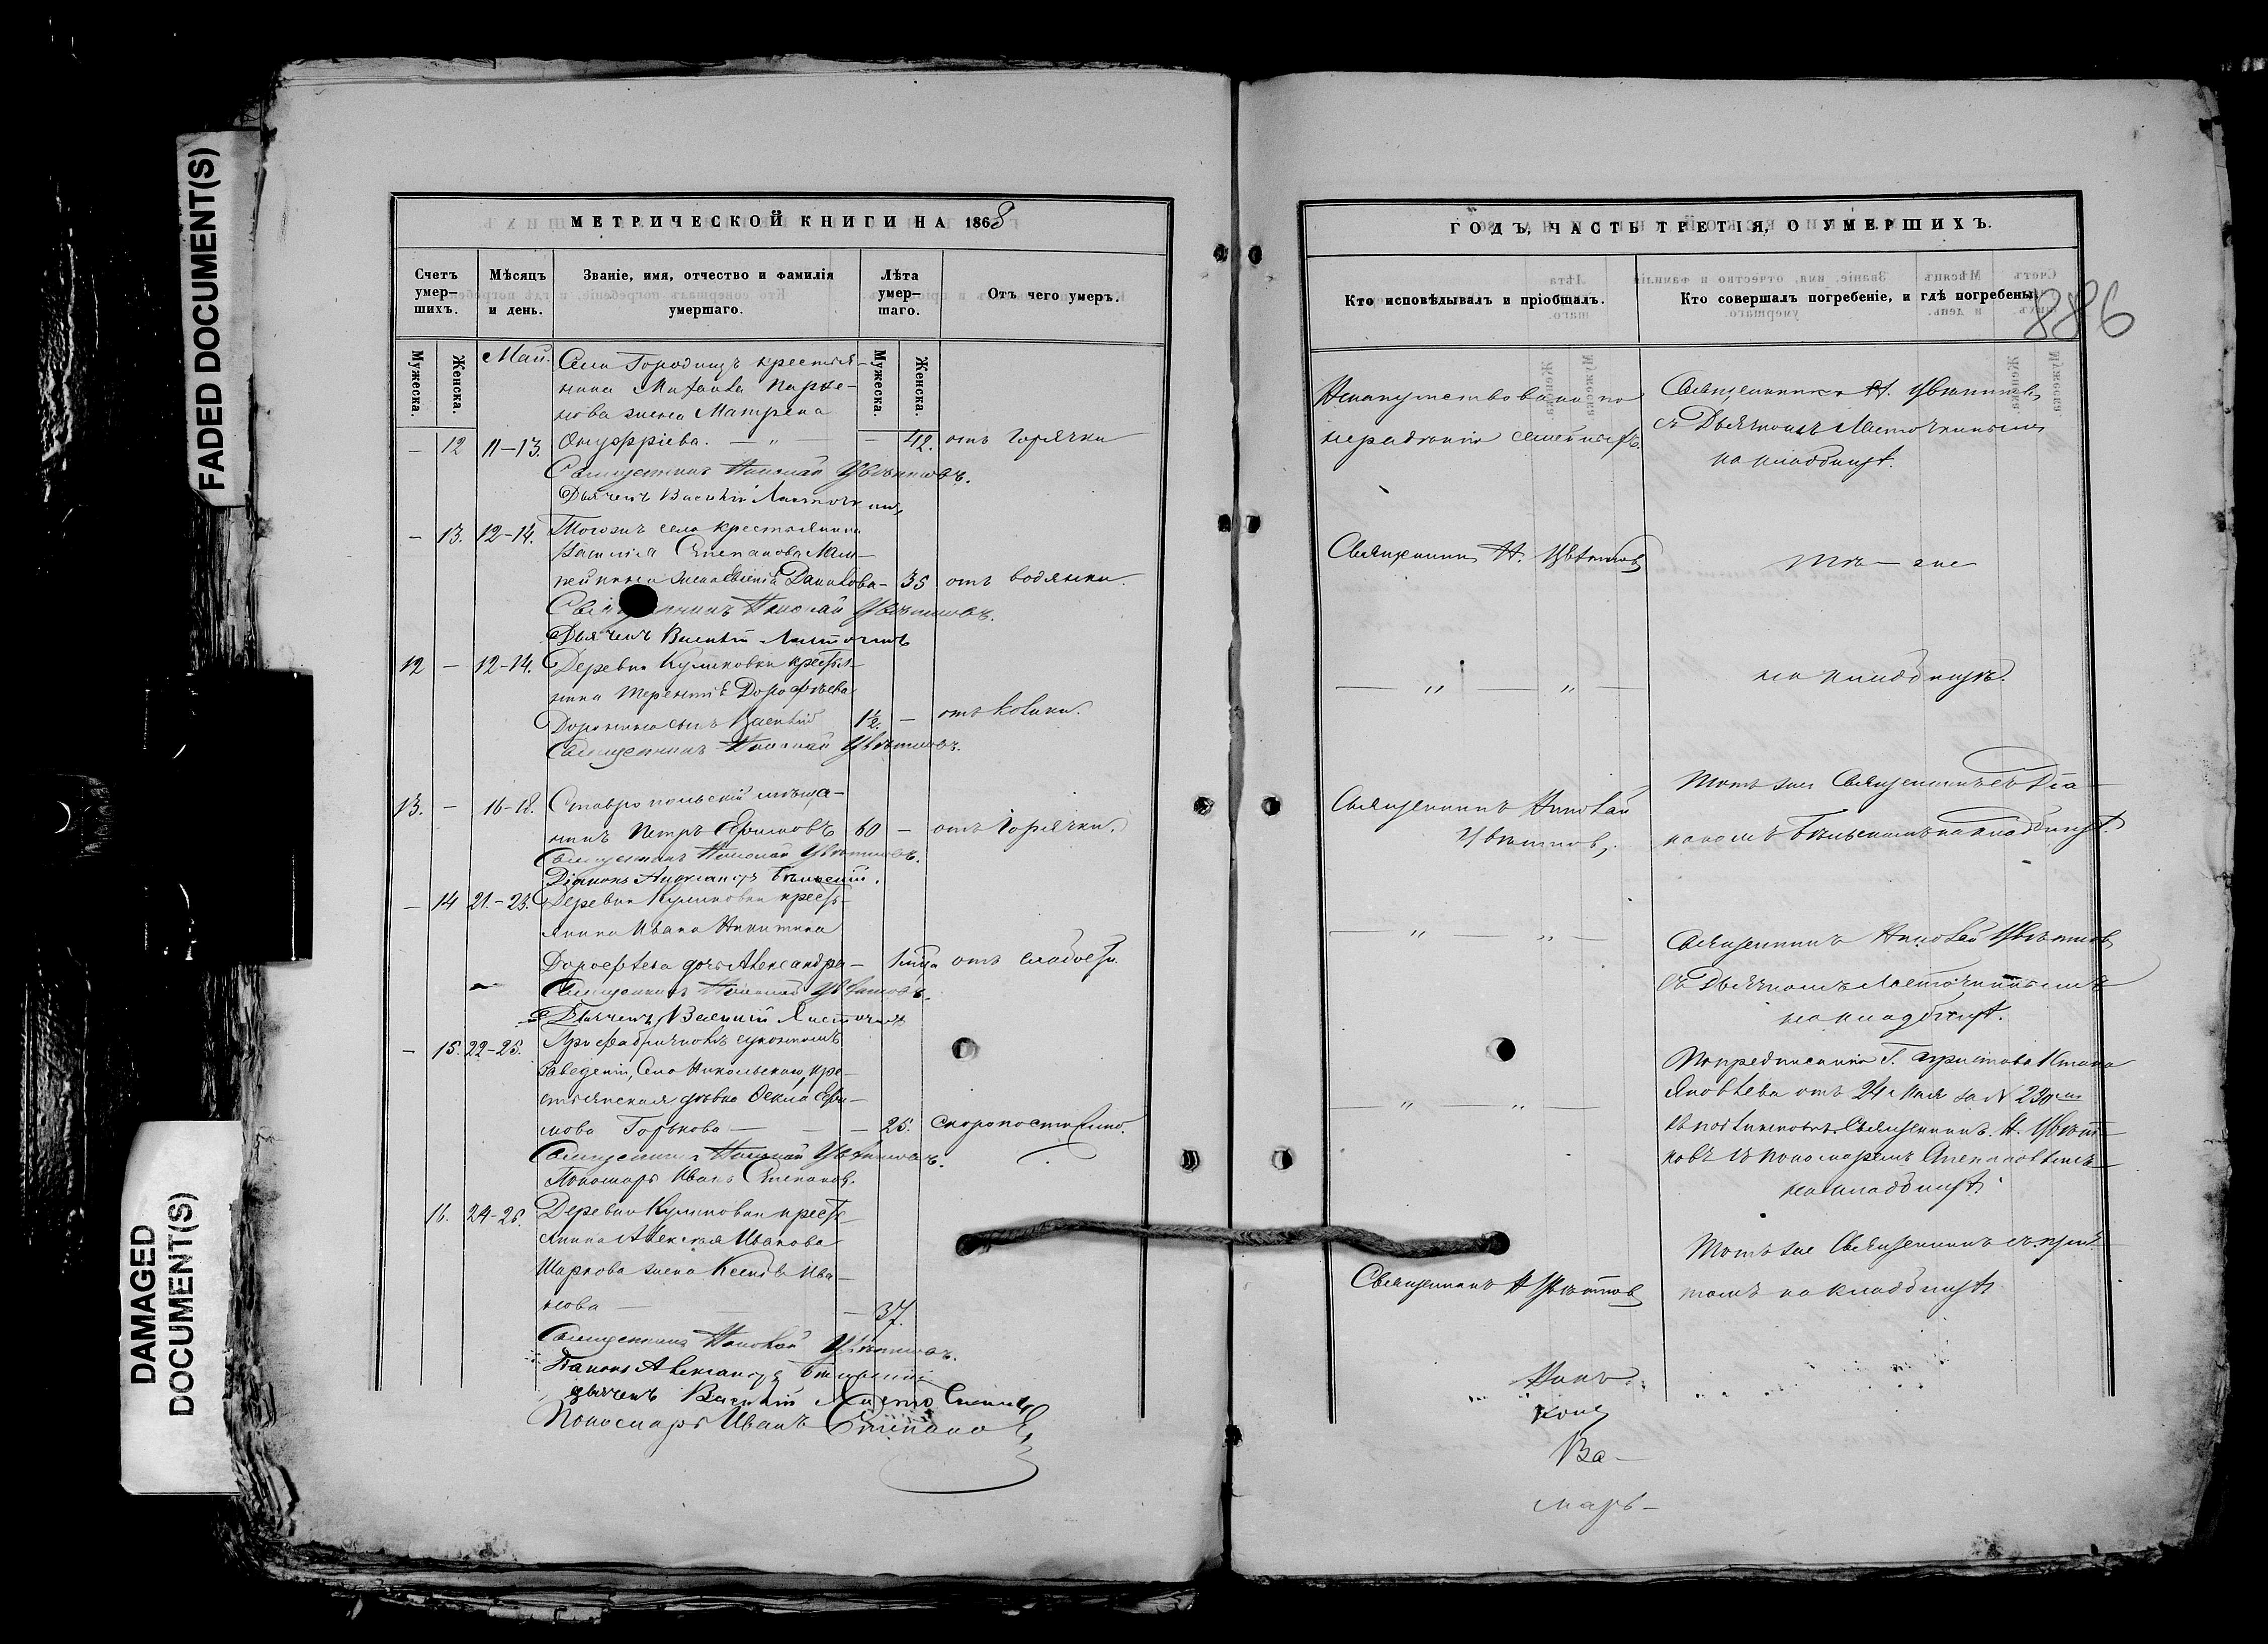 FADED DOCUMENT(S)
DAMAGED
DOCUMENT(S)
МЕТРИЧЕСКОЙ КНИГИ НА 1868
Счетъ
умер–
шихъ.
Мѣсяцъ
и день.
Званіе, имя, отчество и фамилія
умершаго.
Лѣта
умер–
шаго.
Отъ чего умеръ.
Мужеска.
Женска.
Май.
Мужеска.
Женска.
Села Городищъ крестья–
нина Михаила Парѳе–
нова жена Матрена
— 12 11–13. Онуфріева. — „ — — 42. отъ горячки
Священникъ Николай Цвѣтковъ.
Дьячекъ Василій Ласточкинъ
— 13. 12–14. Тогожъ села крестьянина
Василія Степанова
жена Данилова— 35 отъ водянки.
Священникъ Николай Цвѣтковъ.
Дьячекъ Василій Ласточкинъ
12 — 12–14. Деревни Куликовки кресть–
нина Терентія Дорофѣева
сынъ Василій 1½. —
Священникъ Николай Цвѣтковъ.
13. — 16–18. Ставропольскій мѣща–
нинъ Петръ Ефимовъ 60 — отъ горячки.
Священникъ Николай Цвѣтковъ.
Діаконъ Александръ
— 14 21.–23. Деревни Куликовки кресть–
янина Ивана Никитина
Дорофѣева дочь Александра— отъ слабости.
Священникъ Николай Цвѣтковъ.
Дьячекъ Василій Ласточкинъ
— 15. 22–25. При фабричномъ суконномъ
заведеніи, Села Никольскаго, кре–
стьянская дѣвка Ѳекла Ефи–
мова Горькова — — — 25. скоропостижно.
Священникъ Николай Цвѣтковъ.
Пономарь Иванъ Степановъ.
16. 24–26. Деревни Куликовки кресть–
янина Алексѣя Иванова
Шаркова жена Ксенія Ива–
нова — — — 37.
Священникъ Николай Цвѣтковъ.
Діаконъ Александръ
дьячекъ Василій Ласточкинъ
Пономарь Иванъ Степановъ
ГОДЪ, ЧАСТЬ ТРЕТІЯ, О УМЕРШИХЪ.
886
Кто исповѣдывалъ и пріобщалъ.
Кто совершалъ погребеніе, и гдѣ погребены.
Ненапутствована по
нерадѣнію семейныхъ.
Священникъ Н. Цвѣтковъ
съ Дьячкомъ Ласточкинымъ
на кладбищѣ.
Священникъ Н. Цвѣтковъ
Тѣ–же
— „ — „ —
на кладбищѣ.
Священникъ Николай
Цвѣтковъ.
Тотъ же Священникъ съ Діа–
кономъ на кладбищѣ.
— „ — „ —
Священникъ Николай Цвѣтковъ
съ Дьячкомъ Ласточкинымъ
на кладбищѣ.
— „ — „ —
По предписанію Г. Пристава Стана
Яковлева отъ 24 Мая за №
Священникъ Н. Цвѣт–
ковъ съ пономаремъ Степановымъ
на кладбищѣ.
Священникъ Н Цвѣтковъ
Тотъ же Священникъ съ прич–
томъ на кладбищѣ
Ва–
марь–